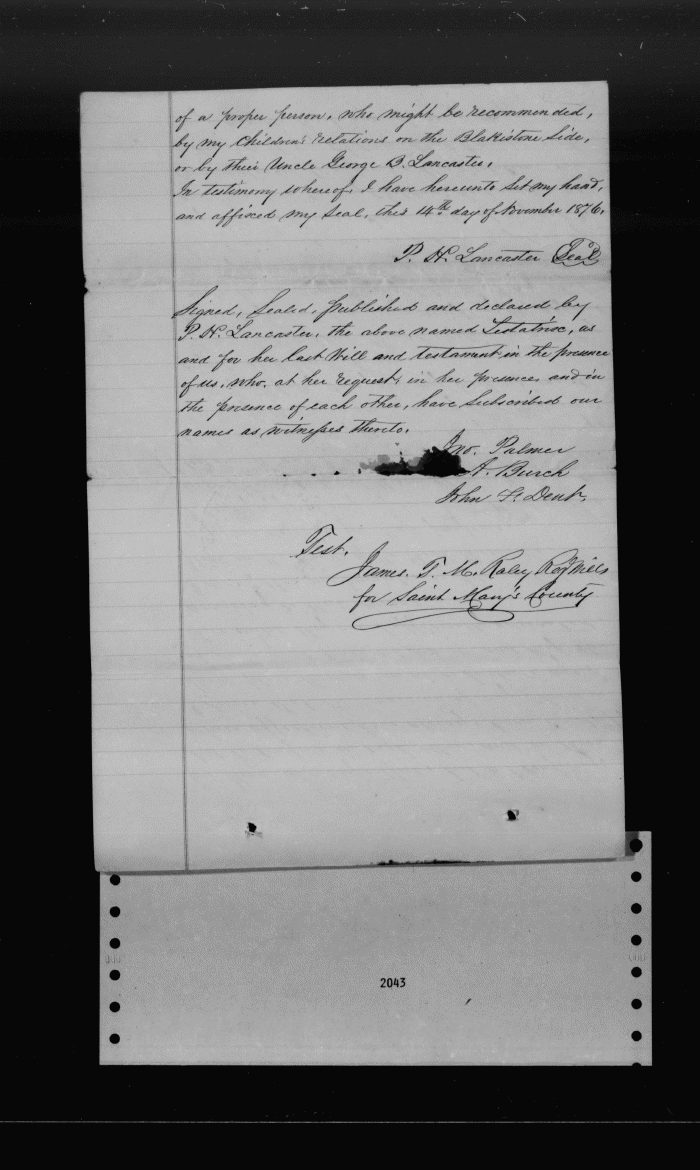 of a proper person, who might be recommended,
by my children's relations on the Blakistone side,
or by their Uncle George B. Lancaster.
In testimony whereof, I have hereunto set my hand,
and affixed my seal, this 14th day of November 1876.
P. H. Lancaster Seal
Signed, Sealed, published and declared by
P. H. Lancaster, the above named Testatrix, as
and for her last Will and testament in the presence
of us, who, at her request, in her presence, and in
the presence of each other, have subscribed our
names as witnesses thereto.
Jno. Palmer
A. Burch
John F. Dent,
Test.
James. T. M. Raley Reg Wills
for Saint Mary's County
2043